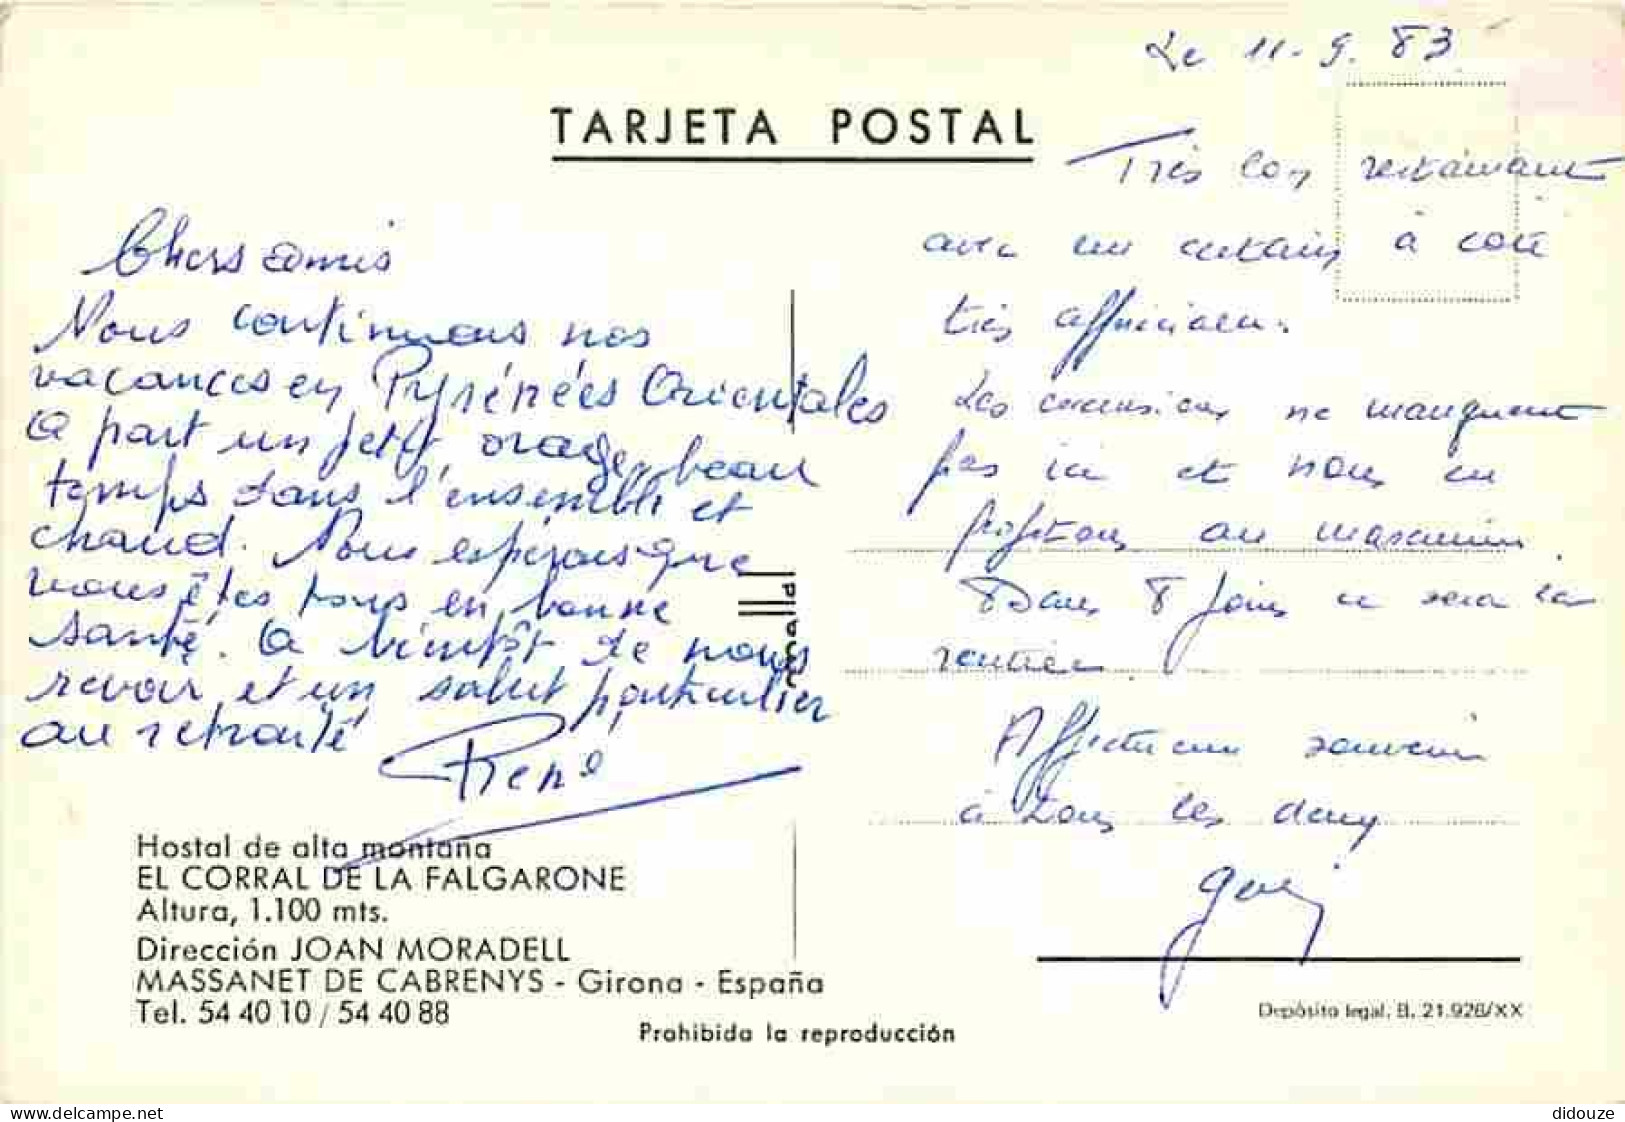 Le 11-9.83
TARJETA POSTAL
Chers amis
Nous continuons nos
vacances en Pyrénées Orientales
A part un petit orage, beau
temps dans l'ensemble et
chaud. Nous espérons que
vous êtes tous en bonne
santé. A bientôt de nous
revoir et un salut particulier
au retraité
René
Très bon restaurant
avec un certain à coté
très
Les excursions ne manquent
pas ici et nous en
profitons au maximum.
Dans 8 jours ce sera la
rentrée
Affectueux souvenir
à tous les deux
Hostal de alta montaña
EL CORRAL DE LA FALGARONE
Altura, 1.100 mts.
Dirección JOAN MORADELL
MASSANET DE CABRENYS - Girona - España
Tel. 54 40 10 / 54 40 88
Prohibida la reproducción
Depósito legal, B. 21.928/XX
www.delcampe.net
didouze